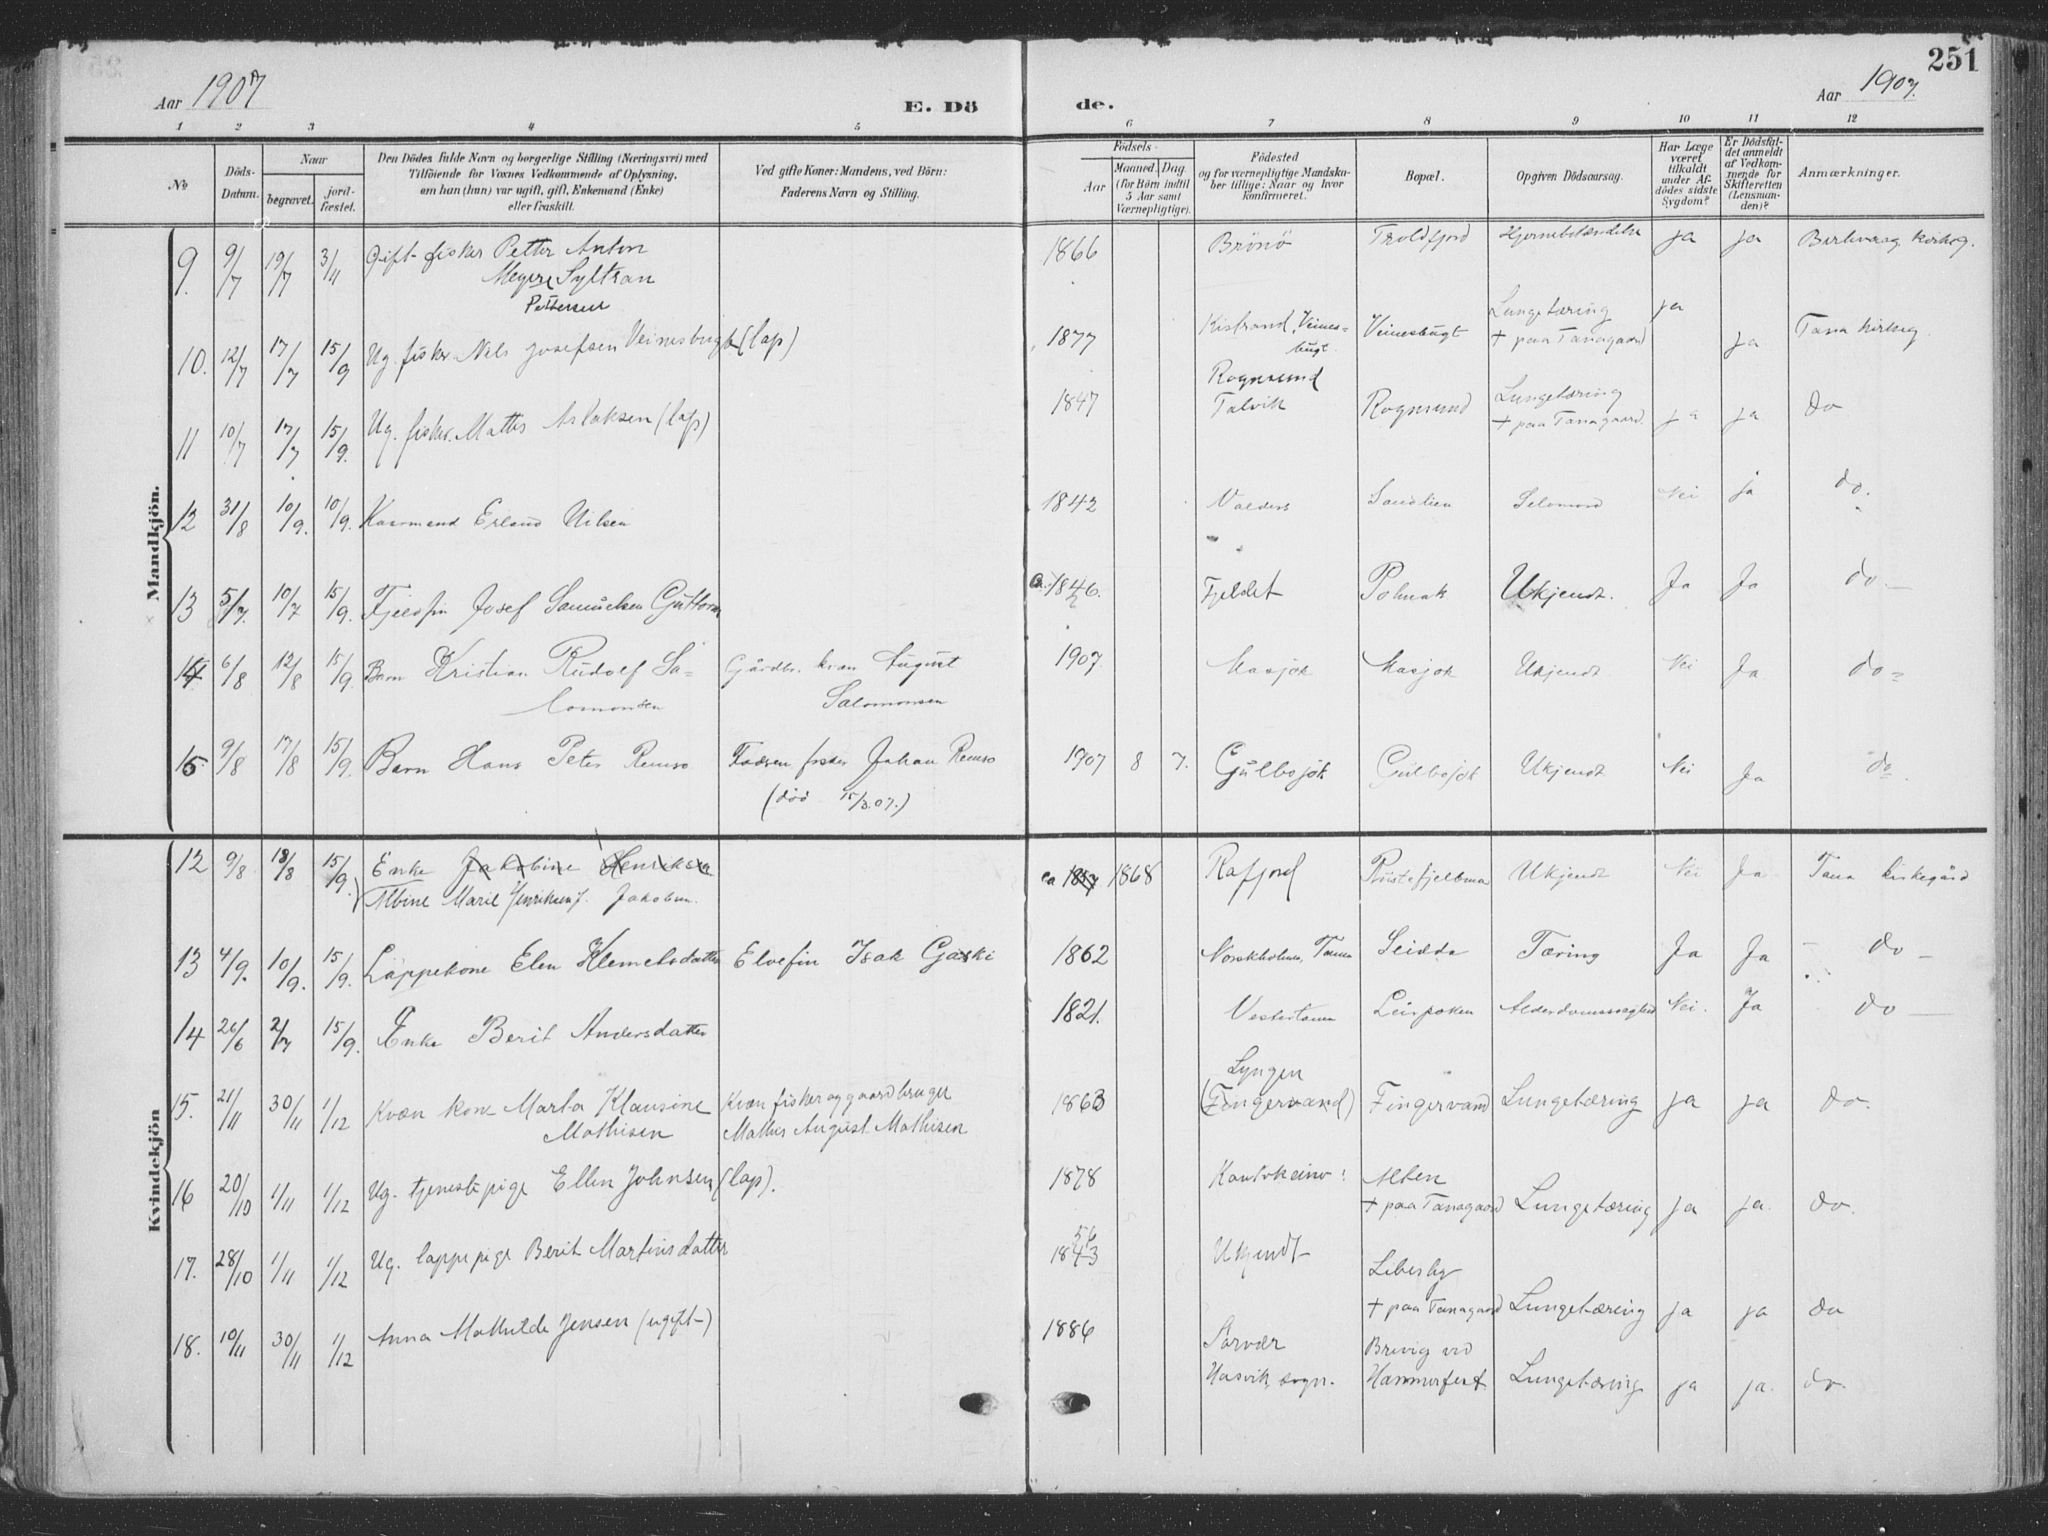 251
Aar 1907
E. Dö
de.
Aar 1907.
1 2 3 4 5 6 7 8 9 10 11 12
No
Döds-Datum.
Naar
begravet.
jord-fæstet.
Den Dödes fulde Navn og borgerlige Stilling (Næringsvei) med
Tilföiende for Voxnes Vedkommende af Oplysning,
om han (hun) var ugift, gift, Enkemand (Enke)
eller fraskilt.
Ved gifte Koner: Mandens, ved Börn:
Faderens Navn og Stilling.
Födsels-
Aar
Maaned. Dag.
(for Börn indtil
5 Aar samt
Værnepligtige).
Födested
og for værnepligtige Mandska-
ber tillige: Naar og hvor
konfirmeret.
Bopæl.
Opgiven Dödsaarsag.
Har Læge
været
tilkaldt
under Af-
dödes sidste
Sygdom?
Er Dödsfal-
det anmeldt
af Vedkom-
mende for
Skifteretten
(Lensman-
den)?
Anmærkninger.
Mandkjön.
9. 9/7 19/7 3/11 Gift fisker Petter Anton 1866 Brönö Troldfjord Hjernebetændelse ja ja
Meyer Syltran
Pettersen
10. 12/7 17/7 15/9 Ug. fisker Nils Josefsen Veinesbugt (lap) 1877 Kistrand, Veines-bugt. Veinesbugt Lungetæring + paa Tanagaard ja ja Tana kirkeg.
11 10/7 17/7 15/9. Ug. fisker. Mattis Aslaksen (lap) 1847 Rognsund Talvik Rognsund Lungetæring + paa Tanagaard. ja ja do
12 31/8 10/9. 10/9. Erland Nilsen 1842 Valders Sandlien Selvmord Nei ja do.
13 5/7. 10/7 15/9. Fjeldfin Josef Samuelsen Guttorm ca. 1846. Fjeldet Polmak Ukjendt. Ja Ja do
14 6/8 12/8 15/9. Barn Kristian Rudolf Sa-lomonsen Gårdbr. kvæn August Salomonsen 1907. Masjok Masjok Ukjendt Nei Ja do
15 9/8 17/8 15/9. Barn Hans Peter Remso fisker Johan Remso (död 15/3.07.) 1907 8 7. Gulbojok Gulbojok Ukjendt Nei Ja do
Kvindekjön
12 9/8 18/8 15/9. Enke Jakobine Henriksen ca 1857 1868 Rafjord Rustefjelbma Ukjendt Nei Ja Tana kirkegård
Albine Marie Henriksen f. Jakobsen.
13 4/9. 10/9. 15/9. Lappekone Elen Klemetsdatter Elvefin Isak Gaski 1862 Norskholmen, Tana Seidda Tæring Ja Ja do
14 26/6 2/7 15/9. Enke Berit Andersdatter 1821. Vestertana Leirpoken Alderdomssvaghed Nei. Ja do
15. 21/11 30/11 1/12 Kvæn kone Marta Klausine Mathisen Kvæn fisker og gaardbruger Mathis August Mathisen 1863 Lyngen (Fingervand) Fingervand Lungetæring ja ja do.
16 20/10 1/11 1/12 Ug. tjenestepige Ellen Johnsen (lap). 1878 Kautokeino Alten + paa Tanagaard Lungetæring ja ja. do.
17. 28/10 1/11 1/12 Ug. lappepige Berit Martinsdatter 1843 56 Ukjendt Lebesby + paa Tanagaard Lungetæring ja ja do
18. 10/11 30/11 1/12 Anna Mathilde Jensen (ugift) 1886 Sørvær Hasvik sogn. Brevig ved Hammerfest. Lungetæring ja ja. do.